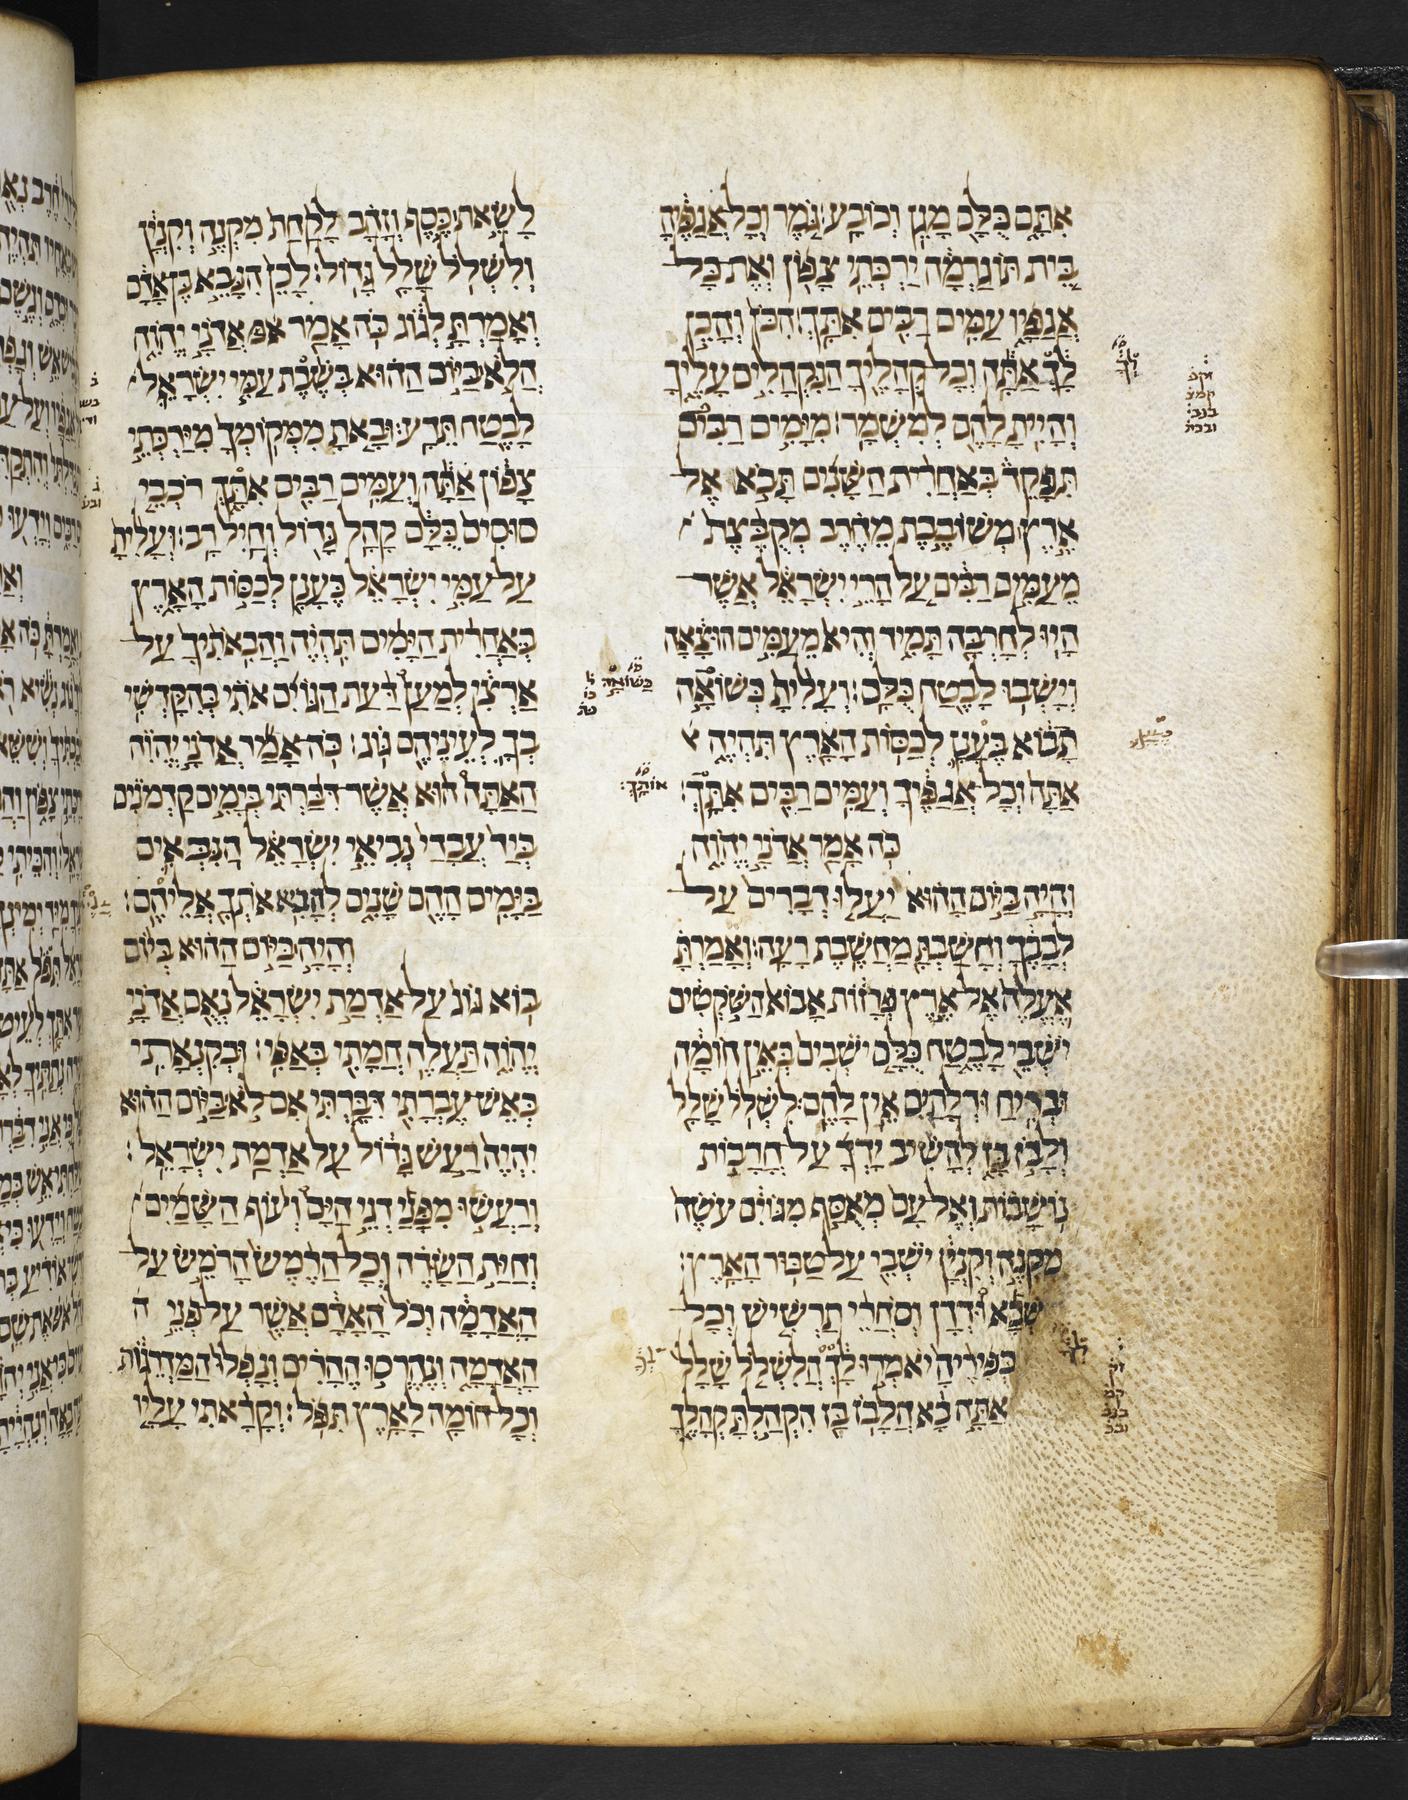 אִתָּם כֻּלָּם מָגֵן וְכוֹבָע׃ גֹּמֶר וְכָל אֲגַפֶּיהָ
בֵּית תּוֹגַרְמָה יַרְכְּתֵי צָפוֹן וְאֶת כָּל
אֲגַפָּיו עַמִּים רַבִּים אִתָּךְ׃ הִכֹּן וְהָכֵן
לְךָ אַתָּה וְכָל קְהָלֶיךָ הַנִּקְהָלִים עָלֶיךָ
וְהָיִיתָ לָהֶם לְמִשְׁמָר׃ מִיָּמִים רַבִּים
תִּפָּקֵד בְּאַחֲרִית הַשָּׁנִים תָּבֹא אֶל
אֶרֶץ מְשׁוֹבֶבֶת מֵחֶרֶב מְקֻבֶּצֶת
מֵעַמִּים רַבִּים עַל הָרֵי יִשְׂרָאֵל אֲשֶׁר
הָיוּ לְחָרְבָּה תָּמִיד וְהִיא מֵעַמִּים הוּצָאָה
וְיָשְׁבוּ לָבֶטַח כֻּלָּם׃ וְעָלִיתָ כְּשׁוֹאָה
תָבוֹא כֶּעָנָן לְכַסּוֹת הָאָרֶץ תִּהְיֶה
אַתָּה וְכָל אֲגַפֶּיךָ וְעַמִּים רַבִּים אִתָּךְ׃
כֹּה אָמַר אֲדֹנָי יְהוִה
וְהָיָה בַּיּוֹם הַהוּא יַעֲלוּ דְבָרִים עַל
לְבָבֶךָ וְחָשַׁבְתָּ מַחֲשֶׁבֶת רָעָה׃ וְאָמַרְתָּ
אֶעֱלֶה אֶל אֶרֶץ פְּרָזוֹת אָבוֹא הַשֹּׁקְטִים
יֹשְׁבֵי לָבֶטַח כֻּלָּם יֹשְׁבִים בְּאֵין חוֹמָה
וּבְרִיחַ וּדְלָתַיִם אֵין לָהֶם׃ לִשְׁלֹל שָׁלָל
וְלָבֹז בַּז לְהָשִׁיב יָדְךָ עַל חֳרָבוֹת
נוֹשָׁבוֹת וְאֶל עַם מְאֻסָּף מִגּוֹיִם עֹשֶׂה
מִקְנֶה וְקִנְיָן יֹשְׁבֵי עַל טַבּוּר הָאָרֶץ׃
שְׁבָא וּדְדָן וְסֹחֲרֵי תַרְשִׁישׁ וְכָל
כְּפִירֶיהָ יֹאמְרוּ לְךָ הֲלִשְׁלֹל שָׁלָל
אַתָּה בָא הֲלָבֹז בַּז הִקְהַלְתָּ קְהָלֶךָ
לָשֵׂאת כֶּסֶף וְזָהָב לָקַחַת מִקְנֶה וְקִנְיָן
וְלִשְׁלֹל שָׁלָל גָּדוֹל׃ לָכֵן הִנָּבֵא בֶן אָדָם
וְאָמַרְתָּ לְגוֹג כֹּה אָמַר אֲדֹנָי יְהוִה
הֲלֹא בַּיּוֹם הַהוּא בְּשֶׁבֶת עַמִּי יִשְׂרָאֵל
לָבֶטַח תֵּדָע׃ וּבָאתָ מִמְּקוֹמְךָ מִיַּרְכְּתֵי
צָפוֹן אַתָּה וְעַמִּים רַבִּים אִתָּךְ רֹכְבֵי
סוּסִים כֻּלָּם קָהָל גָּדוֹל וְחַיִל רָב׃ וְעָלִיתָ
עַל עַמִּי יִשְׂרָאֵל כֶּעָנָן לְכַסּוֹת הָאָרֶץ
בְּאַחֲרִית הַיָּמִים תִּהְיֶה וַהֲבִאוֹתִיךָ עַל
אַרְצִי לְמַעַן דַּעַת הַגּוֹיִם אֹתִי בְּהִקָּדְשִׁי
בְךָ לְעֵינֵיהֶם גּוֹג׃ כֹּה אָמַר אֲדֹנָי יְהוִה
הַאַתָּה הוּא אֲשֶׁר דִּבַּרְתִּי בְּיָמִים קַדְמֹנִים
בְּיַד עֲבָדַי נְבִיאֵי יִשְׂרָאֵל הַנִּבְּאִים
בַּיָּמִים הָהֵם שָׁנִים לְהָבִא אֹתְךָ אֲלֵיהֶם׃
וְהָיָה בַּיּוֹם הַהוּא בְּיוֹם
בּוֹא גוֹג עַל אַדְמַת יִשְׂרָאֵל נְאֻם אֲדֹנָי
יְהוִה תַּעֲלֶה חֲמָתִי בְּאַפִּי׃ וּבְקִנְאָתִי
בְּאֵשׁ עֶבְרָתִי דִּבַּרְתִּי אִם לֹא בַּיּוֹם הַהוּא
יִהְיֶה רַעַשׁ גָּדוֹל עַל אַדְמַת יִשְׂרָאֵל׃
וְרָעֲשׁוּ מִפָּנַי דְּגֵי הַיָּם וְעוֹף הַשָּׁמַיִם
וְחַיַּת הַשָּׂדֶה וְכָל הָרֶמֶשׂ הָרֹמֵשׂ עַל
הָאֲדָמָה וְכֹל הָאָדָם אֲשֶׁר עַל פְּנֵי
הָאֲדָמָה וְנֶהֶרְסוּ הֶהָרִים וְנָפְלוּ הַמַּדְרֵגוֹת
וְכָל חוֹמָה לָאָרֶץ תִּפּוֹל׃ וְקָרָאתִי עָלָיו